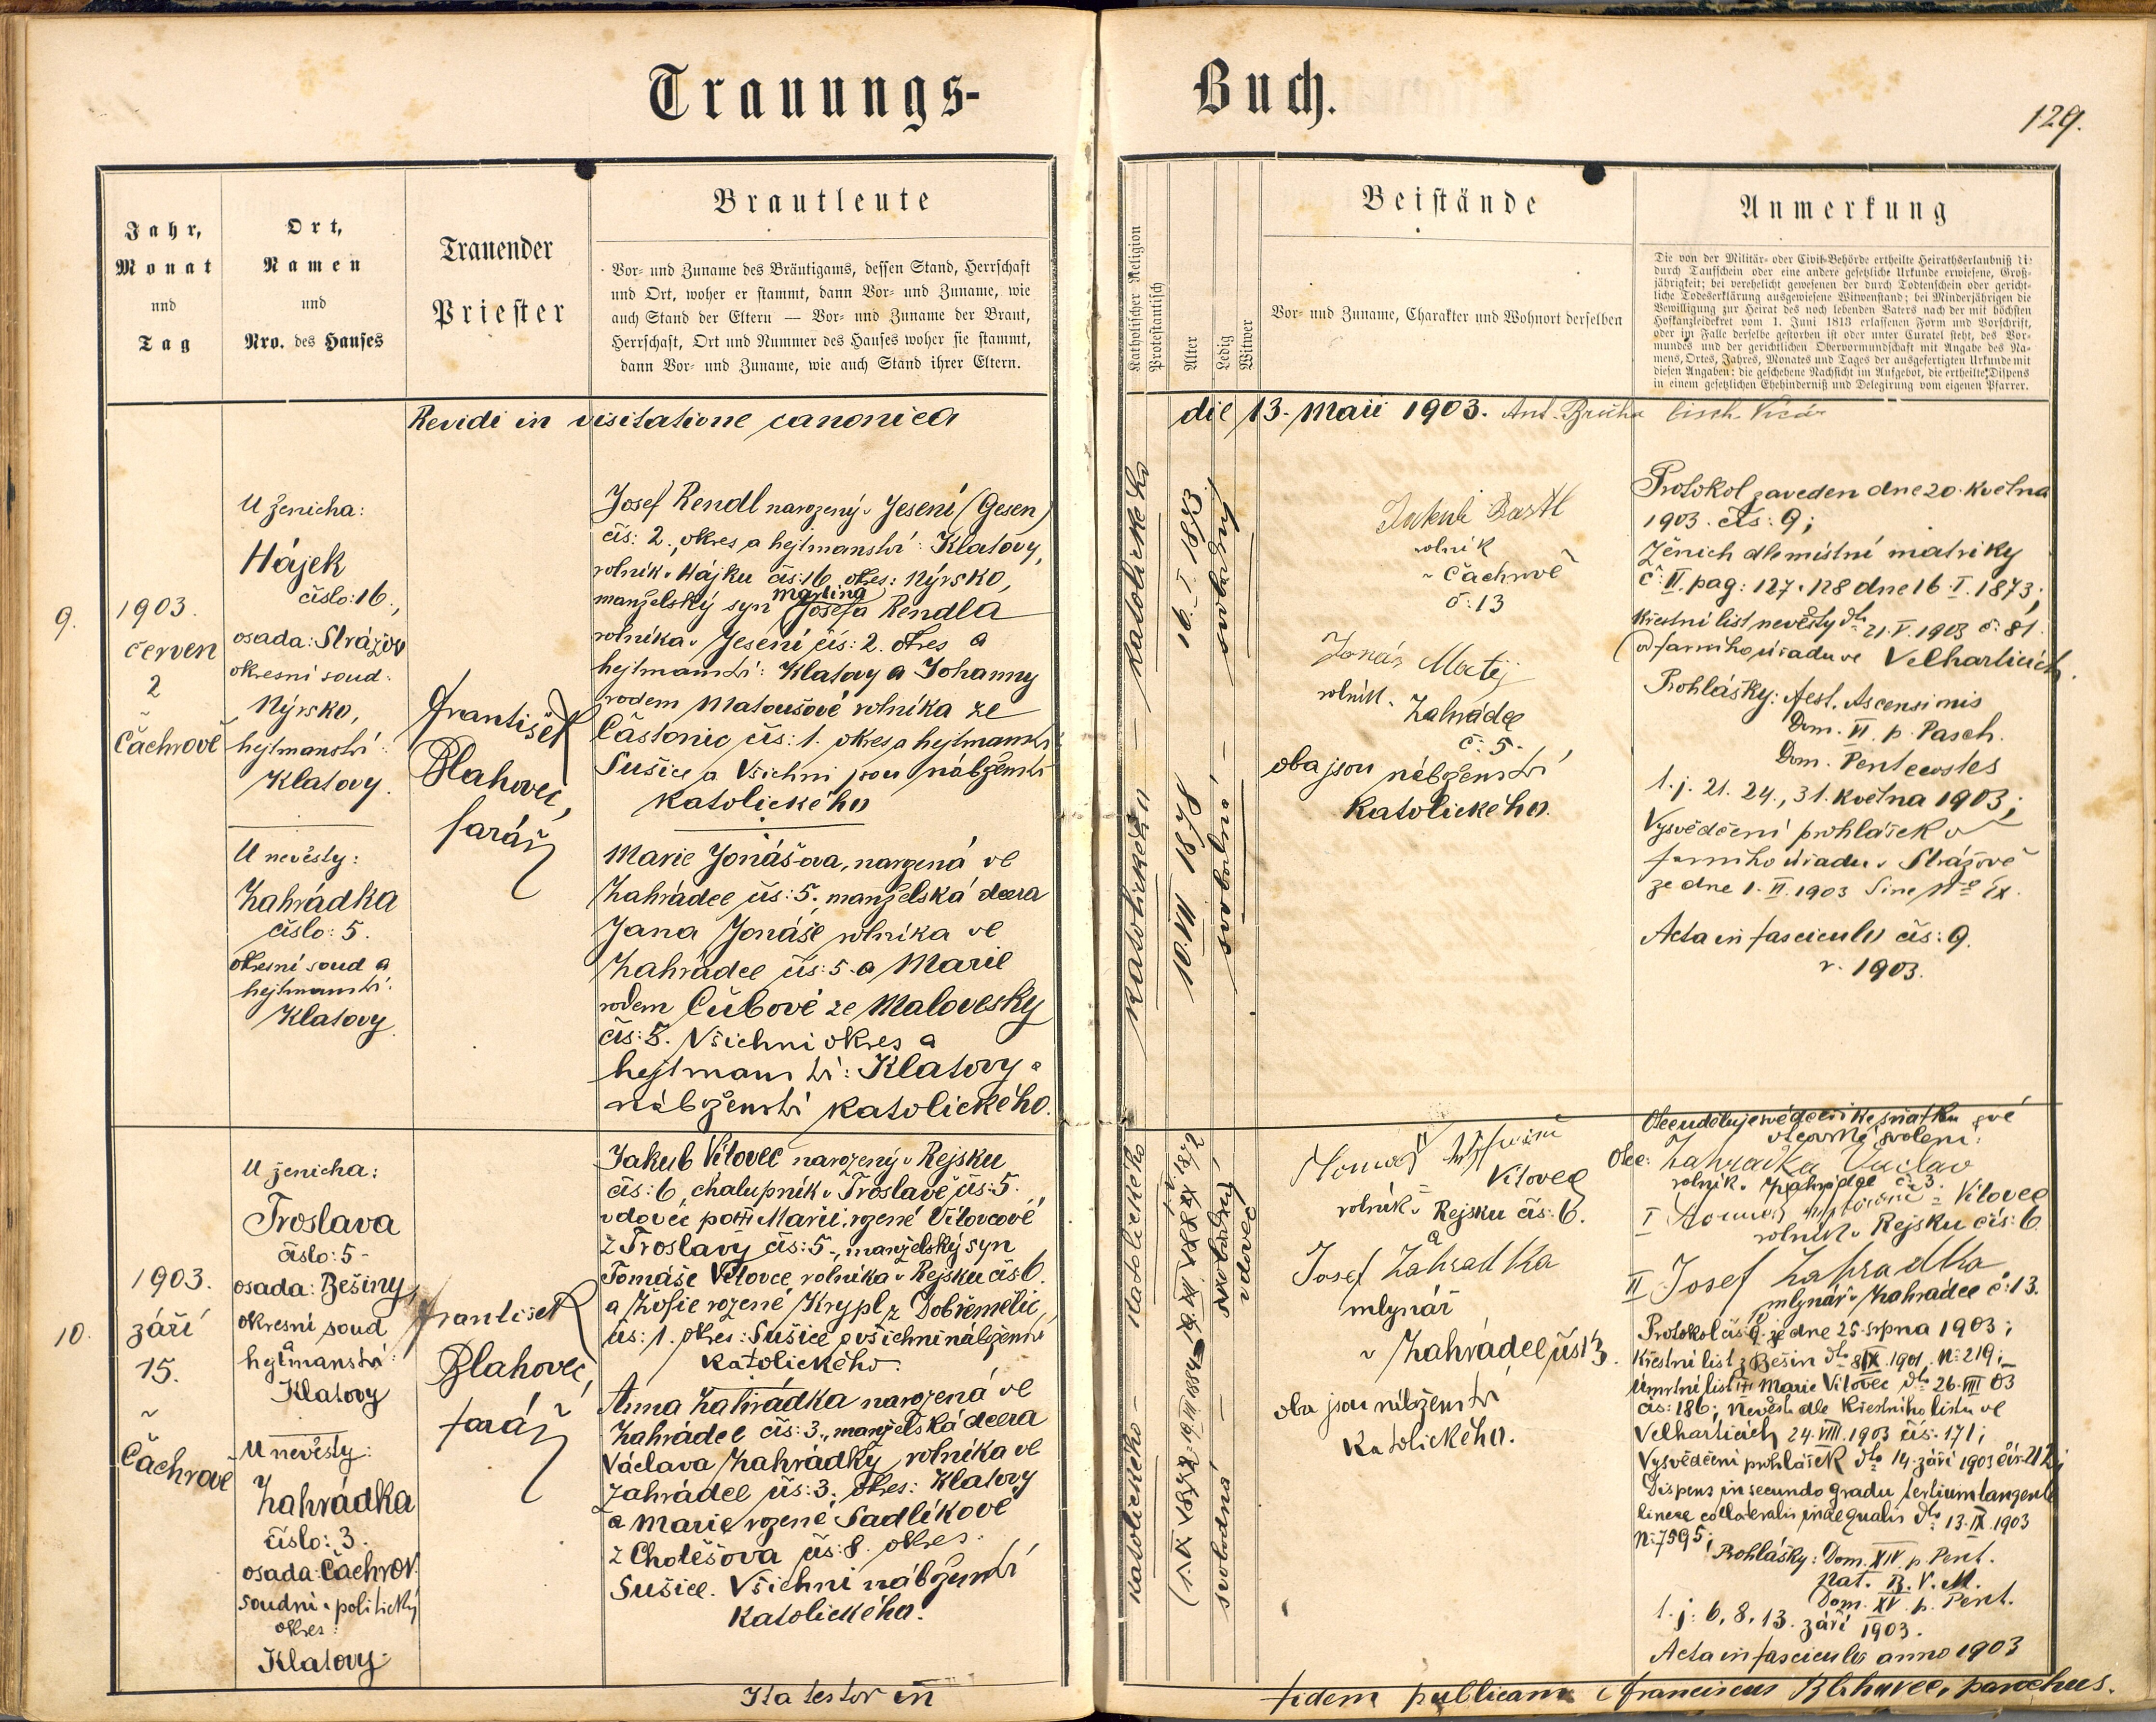 Trauungs-
Buch.
129.
Jahr,
Monat
und
Tag
Ort,
Namen
und
Nro. des Hauses
Trauender
Priester
Brautleute
Vor- und Zuname des Bräutigams, dessen Stand, Herrschaft
und Ort, woher er stammt, dann Vor- und Zuname, wie
auch Stand der Eltern — Vor- und Zuname der Braut,
Herrschaft, Ort und Nummer des Hauses woher sie stammt,
dann Vor- und Zuname, wie auch Stand ihrer Eltern.
Katholischer Religion
Protestantisch
Alter
Ledig
Witwer
Beistände
Vor- und Zuname, Charakter und Wohnort derselben
Anmerkung
Die von der Militär- oder Civil-Behörde ertheilte Heirathserlaubniß
durch Taufschein oder eine andere gesetzliche Urkunde erwiesene, Groß-
jährigkeit; bei verehelicht gewesenen der durch Todtenschein oder gericht-
liche Todeserklärung ausgewiesene Witwenstand; bei Minderjährigen die
Bewilligung zur Heirat des noch lebenden Vaters nach der mit höchsten
Hofkanzleidekret vom 1. Juni 1813 erlassenen Form und Vorschrift,
oder im Falle derselbe gestorben ist oder unter Curatel steht, des Vor-
mundes und der gerichtlichen Obervormundschaft mit Angabe des Na-
mens, Ortes, Jahres, Monates und Tages der ausgefertigten Urkunde mit
diesen Angaben: die geschehene Nachsicht im Aufgebot, die ertheilte Dispens
in einem gesetzlichen Ehehinderniß und Delegirung vom eigenen Pfarrer.
Revidi in visitatione canonica die 13. Maii 1903. Ant. Brůha bisch. Vicár
9.
1903.
červen
2
v
Čachrově
U ženicha:
Hájek
číslo: 16.,
osada: Strážov
okresní soud:
Nýrsko,
hejtmanství:
Klatovy.
U nevěsty:
Zahrádka
číslo: 5.
okresní soud a
hejtmanství:
Klatovy.
František
Blahovec,
farář
Josef Rendl narozený v Jesení (Gesen)
čís: 2., okres a hejtmanství: Klatovy,
rolník v Hájku čís: 16 okres: Nýrsko,
martina
manželský syn Josefa Rendla
rolníka v Jesení čís: 2. okres a
hejtmanství: Klatovy a Johanny
rodem Matoušové rolníka ze
Částonic čís: 1. okres a hejtmanství
Sušice a Všichni jsou náboženství
katolického
Marie Jonáš-ova, narozená ve
Zahrádce čís: 5. manželská dcera
Jana Jonáše rolníka ve
Zahrádce čís: 5. a Marie
rodem Čubové ze Malovesky
čís: 5. Všichni okres a
hejtmanství: Klatovy a
náboženství katolického.
katolického — katolického
16. I 1873. 10. VII 1878
svobodný — svobodná
Jakub Bartl
rolník
v Čachrově
č: 13
Jonáš Matěj
rolník v Zahrádce
č: 5.
oba jsou náboženství
katolického.
Protokol zaveden dne 20. května
1903. čís: 9;
Ženich dle místní matriky
č: II. pag: 127. 128 dne 16. I. 1873;
Křestní list nevěsty dto 21. V. 1903 č: 81
od farního úřadu ve Velharticích.
Prohlášky: fest. Ascensionis
Dom. VI p. Pasch.
Dom. Pentecostes
t. j. 21. 24., 31. května 1903;
Vysvědčení prohlášek od
farního úřadu v Strážově
ze dne 1. VI. 1903 Sine Nro ex.
Acta in fasciculo čís: 9.
r. 1903.
10.
1903.
září
15.
v
Čachrově
U ženicha:
Troslava
číslo: 5-
osada: Bešiny,
okresní soud
a
hejtmanství:
Klatovy
U nevěsty:
Zahrádka
číslo: 3.
osada: Čachrov
soudní a politický
okres:
Klatovy.
František
Blahovec,
farář
Jakub Vítovec narozený v Rejsku
čís: 6, chalupník v Troslavě čís: 5.
vdovec po Marii rozené Vítovcové
z Troslavy čís: 5-, manželský syn
Tomáše Vítovce rolníka v Rejsku čís: 6.
a Žofie rozené Krypl z Dobřemělic,
čís: 1. okres: Sušice a všichni náboženství
katolického.
Anna Zahrádka narozená ve
Zahrádce čís: 3., manželská dcera
Václava Zahrádky, rolníka ve
Zahrádce čís: 3. okres: Klatovy
a Marie rozené Sadlíkové
z Cholěšova čís: 8. okres
Sušice. Všichni náboženství
katolického.
katolického — katolického
svobodná — vdovec
Tomáš Vítovec
rolník v Rejsku čís: 6.
a
Josef Zahradka
mlynář
v Zahrádce čís 13.
oba jsou náboženství
katolického.
otcovské svolení:
Otec: Zahradka Vaclav
rolník v Zahrádce č: 3.
I Vítovec
rolník v Rejsku čís: 6
II Josef Zahradka
mlynář v Zahrádce č: 13.
Protokol čís 9. ze dne 25. srpna 1903;
Křestní list z Bešin dto 8 IX. 1901. N: 219;
Úmrtní list Marie Vítovec dto 26. VIII 03
čís: 186; Nevěsta dle křestního listu ve
Velharticích 24. VIII. 1903 čís: 171;
Vysvědčení prohlášek dto 14. září 1903 čís 212;
Dispens in secundo gradu tertium tangente
lineae collateralis inaequalis dto: 13. IX. 1903
N: 7595; Prohlášky: Dom. XIV p. Pent.
Nat. B. V. M.
Dom. XV. p. Pent.
t. j: 6, 8, 13. září 1903.
Acta in fasciculo anno 1903
Ita testor in fidem publicam Franciscus Blahovec, parochus.